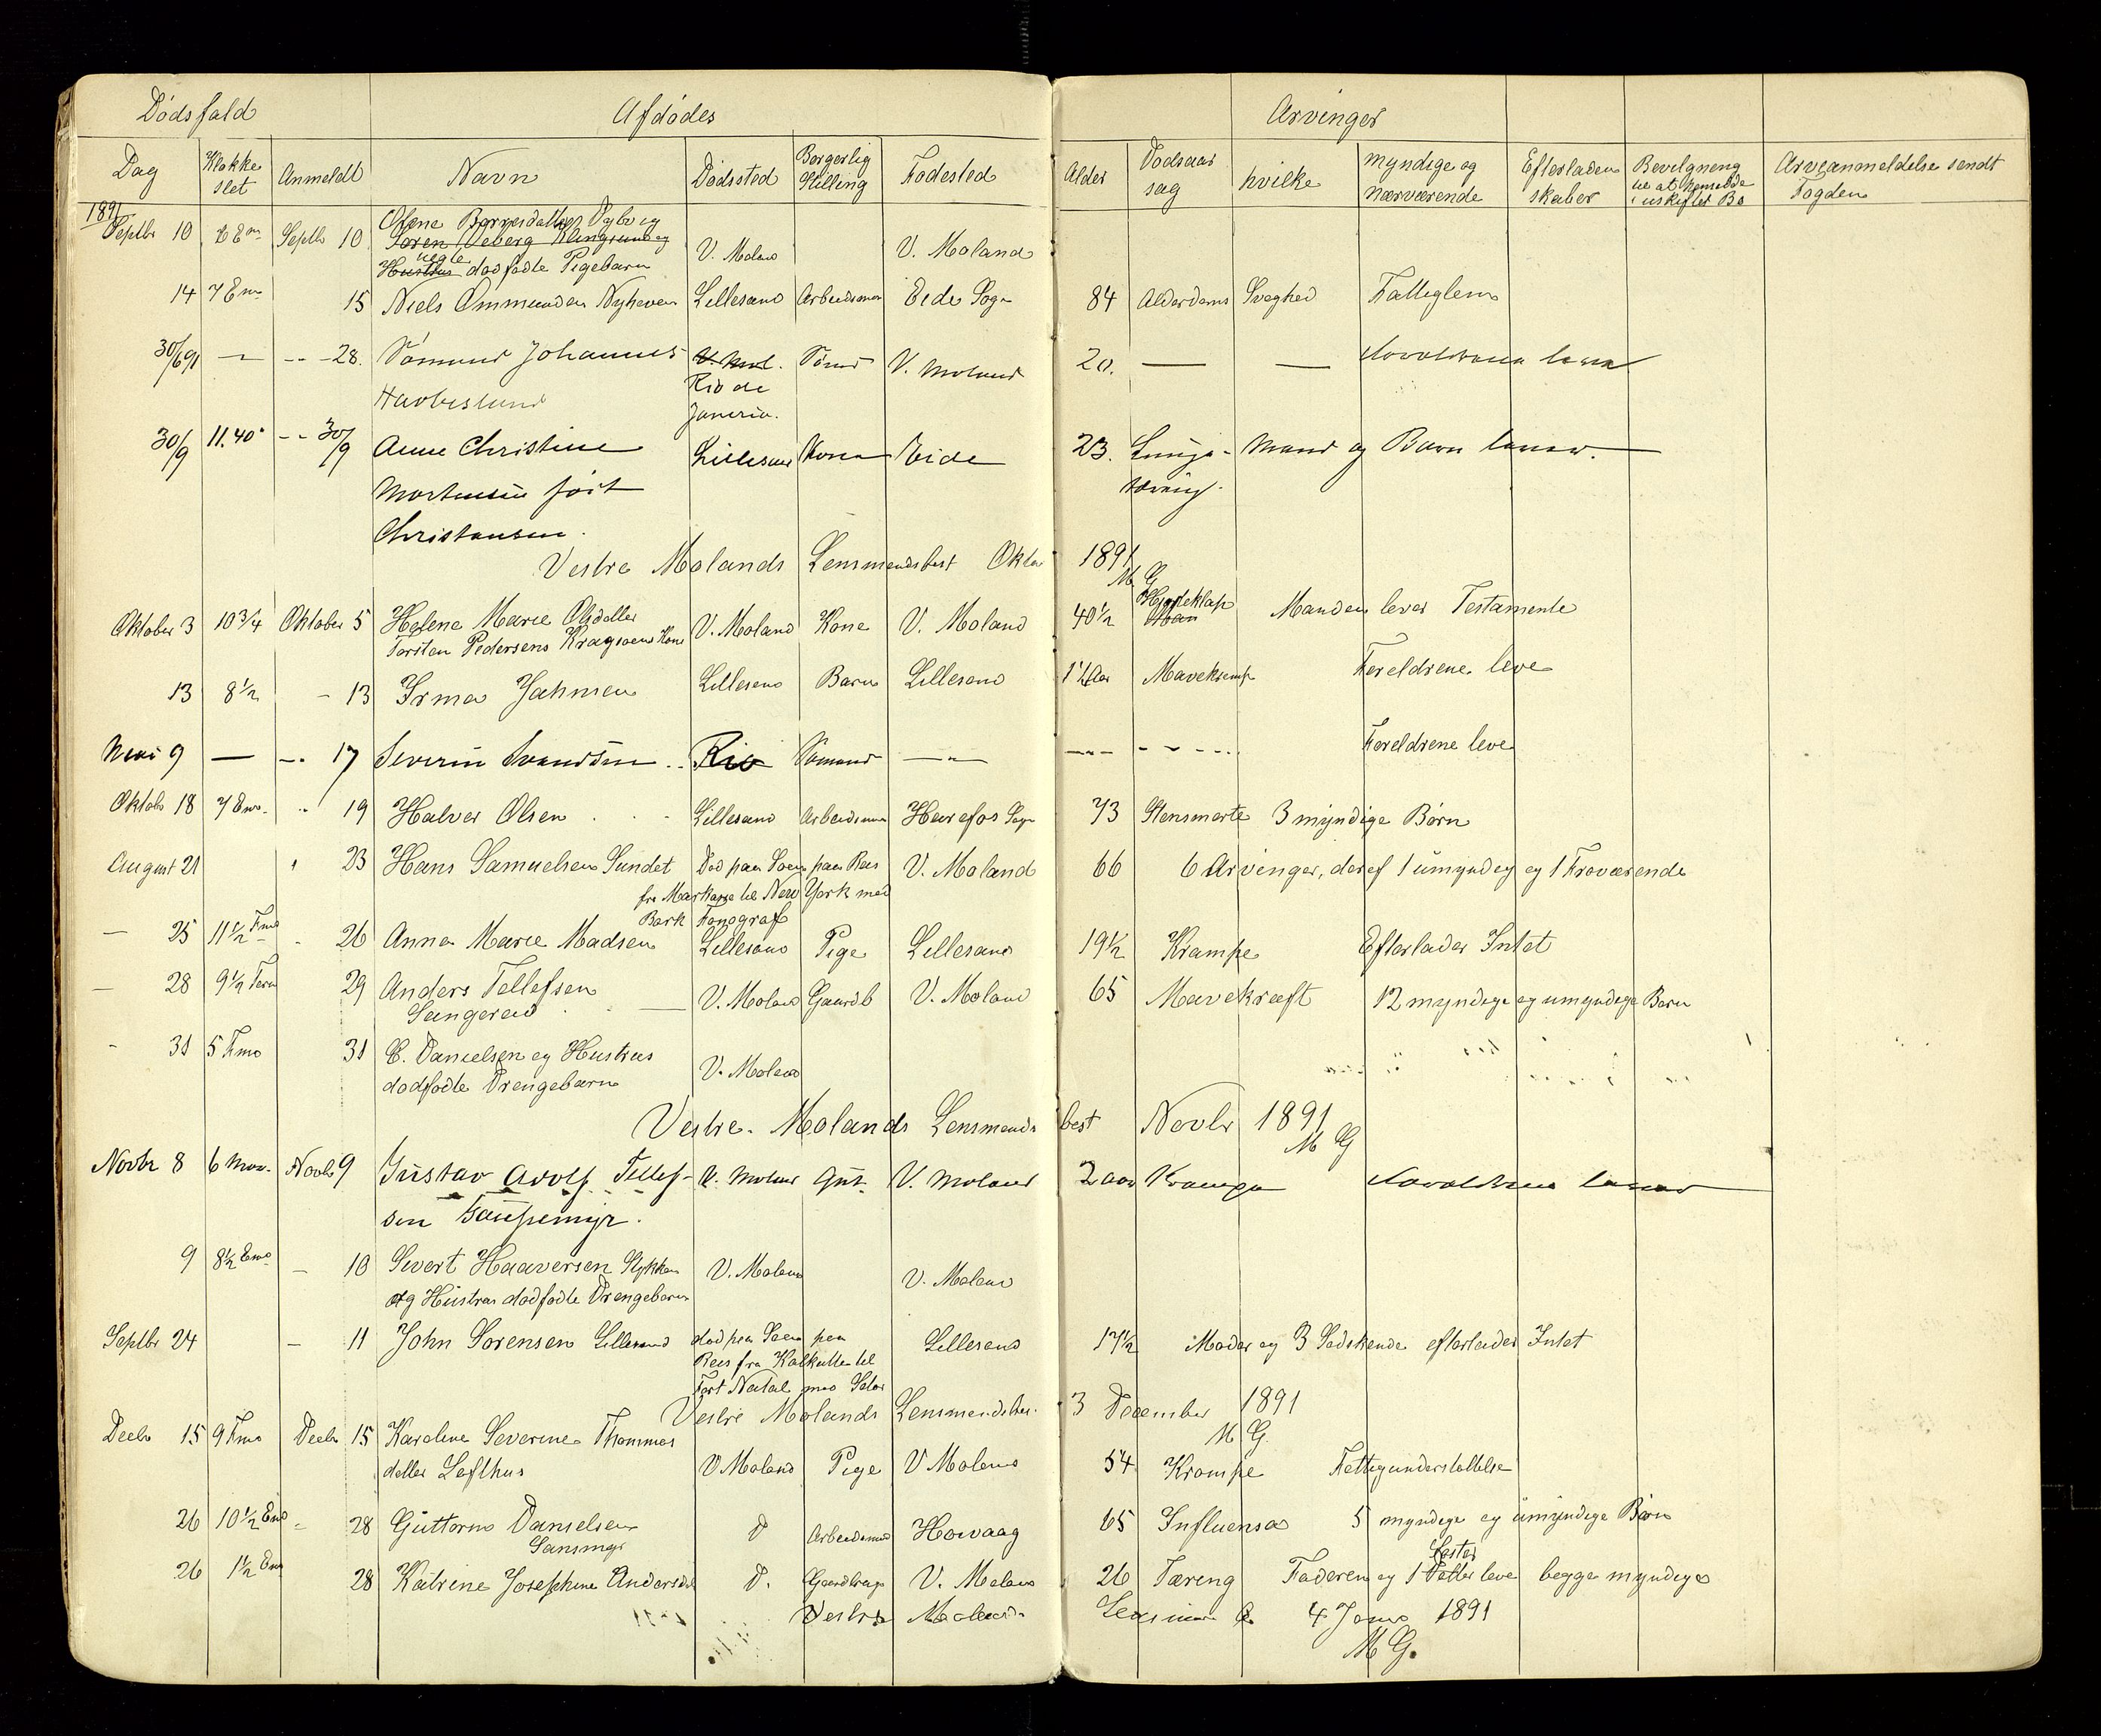 Dødsfald Afdødes Arvinger
Dag Klokkeslet Anmeldt Navn Dødssted Borgerlig Stilling Fødested Alder Dødsaarsag hvilke myndige og nærværende Efterladenskaber Bevilgning til at hensidde i uskiftet Bo Arveanmeldelse sendt Fogden
1891
Septbr 10 Em Septb 10 Olene Børresdatter Dybvig
Søren Veberg Klingsund og
uegte
Hustrus dødfødte Pigebarn V. Moland V. Moland
14 7 Em 15 Niels Ommundsen Nyhaven Lillesand Arbeidsman Eide Sogn 84 Alderdoms Svaghed Fattiglem
30/6 91 — -- 28. Sømand Johannes V. Mol. Sømd V. Moland 20. — —
Havbeslund Rio de
Janerio.
30/9 11.40 -- 30/9 Anne Christine Lillesand Kone Eide 23. Lunge- Mand og Barn lever.
Mortensen født tæring.
Christensen.
Vestre Molands Lensmandsbest Oktbr 1891
M G
Oktober 3 10 3/4 Oktober 5 Helene Marie Olsdatter V. Moland Kone V. Moland 40 1/2 Hjerteklap Manden lever Testamente
Torsten Pedersens Kragsøens Kone
13 8 1/2 - 13 Irma Jahnsen Lillesand Barn Lillesand Mavekramp Foreldrene leve
Mai 9 — -- 17 Severin Svendsen Rio Sømand — Foreldrene leve
Oktob 18 7 Em. " 19 Halvor Olsen Lillesand Arbeidsman Herefos Sogn 73 Stensmerte 3 myndige Børn
August 21 " 23 Hans Samuelsen Sundet Død paa Søen paa Reis V. Moland 66 6 Arvinger, deraf 1 umyndig og 1 Fraværende
fra til New York med
Bark Fonograf
— 25 11 1/2 Fmd - 26 Anna Marie Madsen Lillesand Pige Lillesand 19 1/2 Krampe Efterlader Intet
— 28 9 1/2 Form 29 Anders Tellefsen V. Moland Gaardb V. Moland 65 Mavekræft 12 myndige og umyndige Børn
- 31 5 Fmd 31 C. Danielsen og Hustrus
dødfødte Drengebarn V. Moland
Vestre Molands Lensmandsbest Novbr 1891
M G
Novbr 8 6 Mor. Novbr 9 Gustav Adolf Tellef- V. Moland Gut V. Moland 2 aar Krampe
sen Gaupemyr.
9 8 1/2 Emd — 10 Sivert Haaversen Stykken V. Moland V. Moland
og Hustrus dødfødte Drengebarn
Septbr 24 — 11 John Sørensen Lillesand død paa Søen paa Lillesand 17 1/2 Moder og 3 Sødskende efterlader Intet
Reis fra Kalkutta til
Port Natal med
Vestre Molands Lensmandsbes. 3 December 1891
M G.
Decbr 15 9 Fmd Decbr 15 Karoline Severine Thommes
datter Lofthus V Moland Pige V Moland 54 Krampe Fattigunderstøttelse
26 10 1/2 Emd - 28 Guttorm Danielsen D Arbeidsmd Høvaag 65 Influensa 5 myndige og umyndige Børn
Sansmyr
26 1 1/2 Em 28 Katrine Josephine Andersdt D. V. Moland 26 Tæring Faderen og 1 Søster leve begge myndige
Vestre Molands Lensmand 4 Janr 1891
M G.